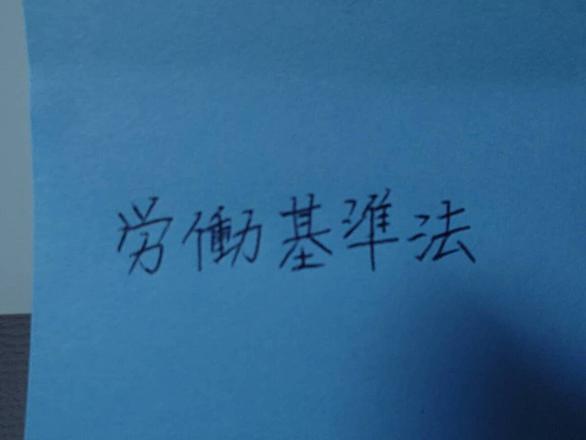 労働基準法